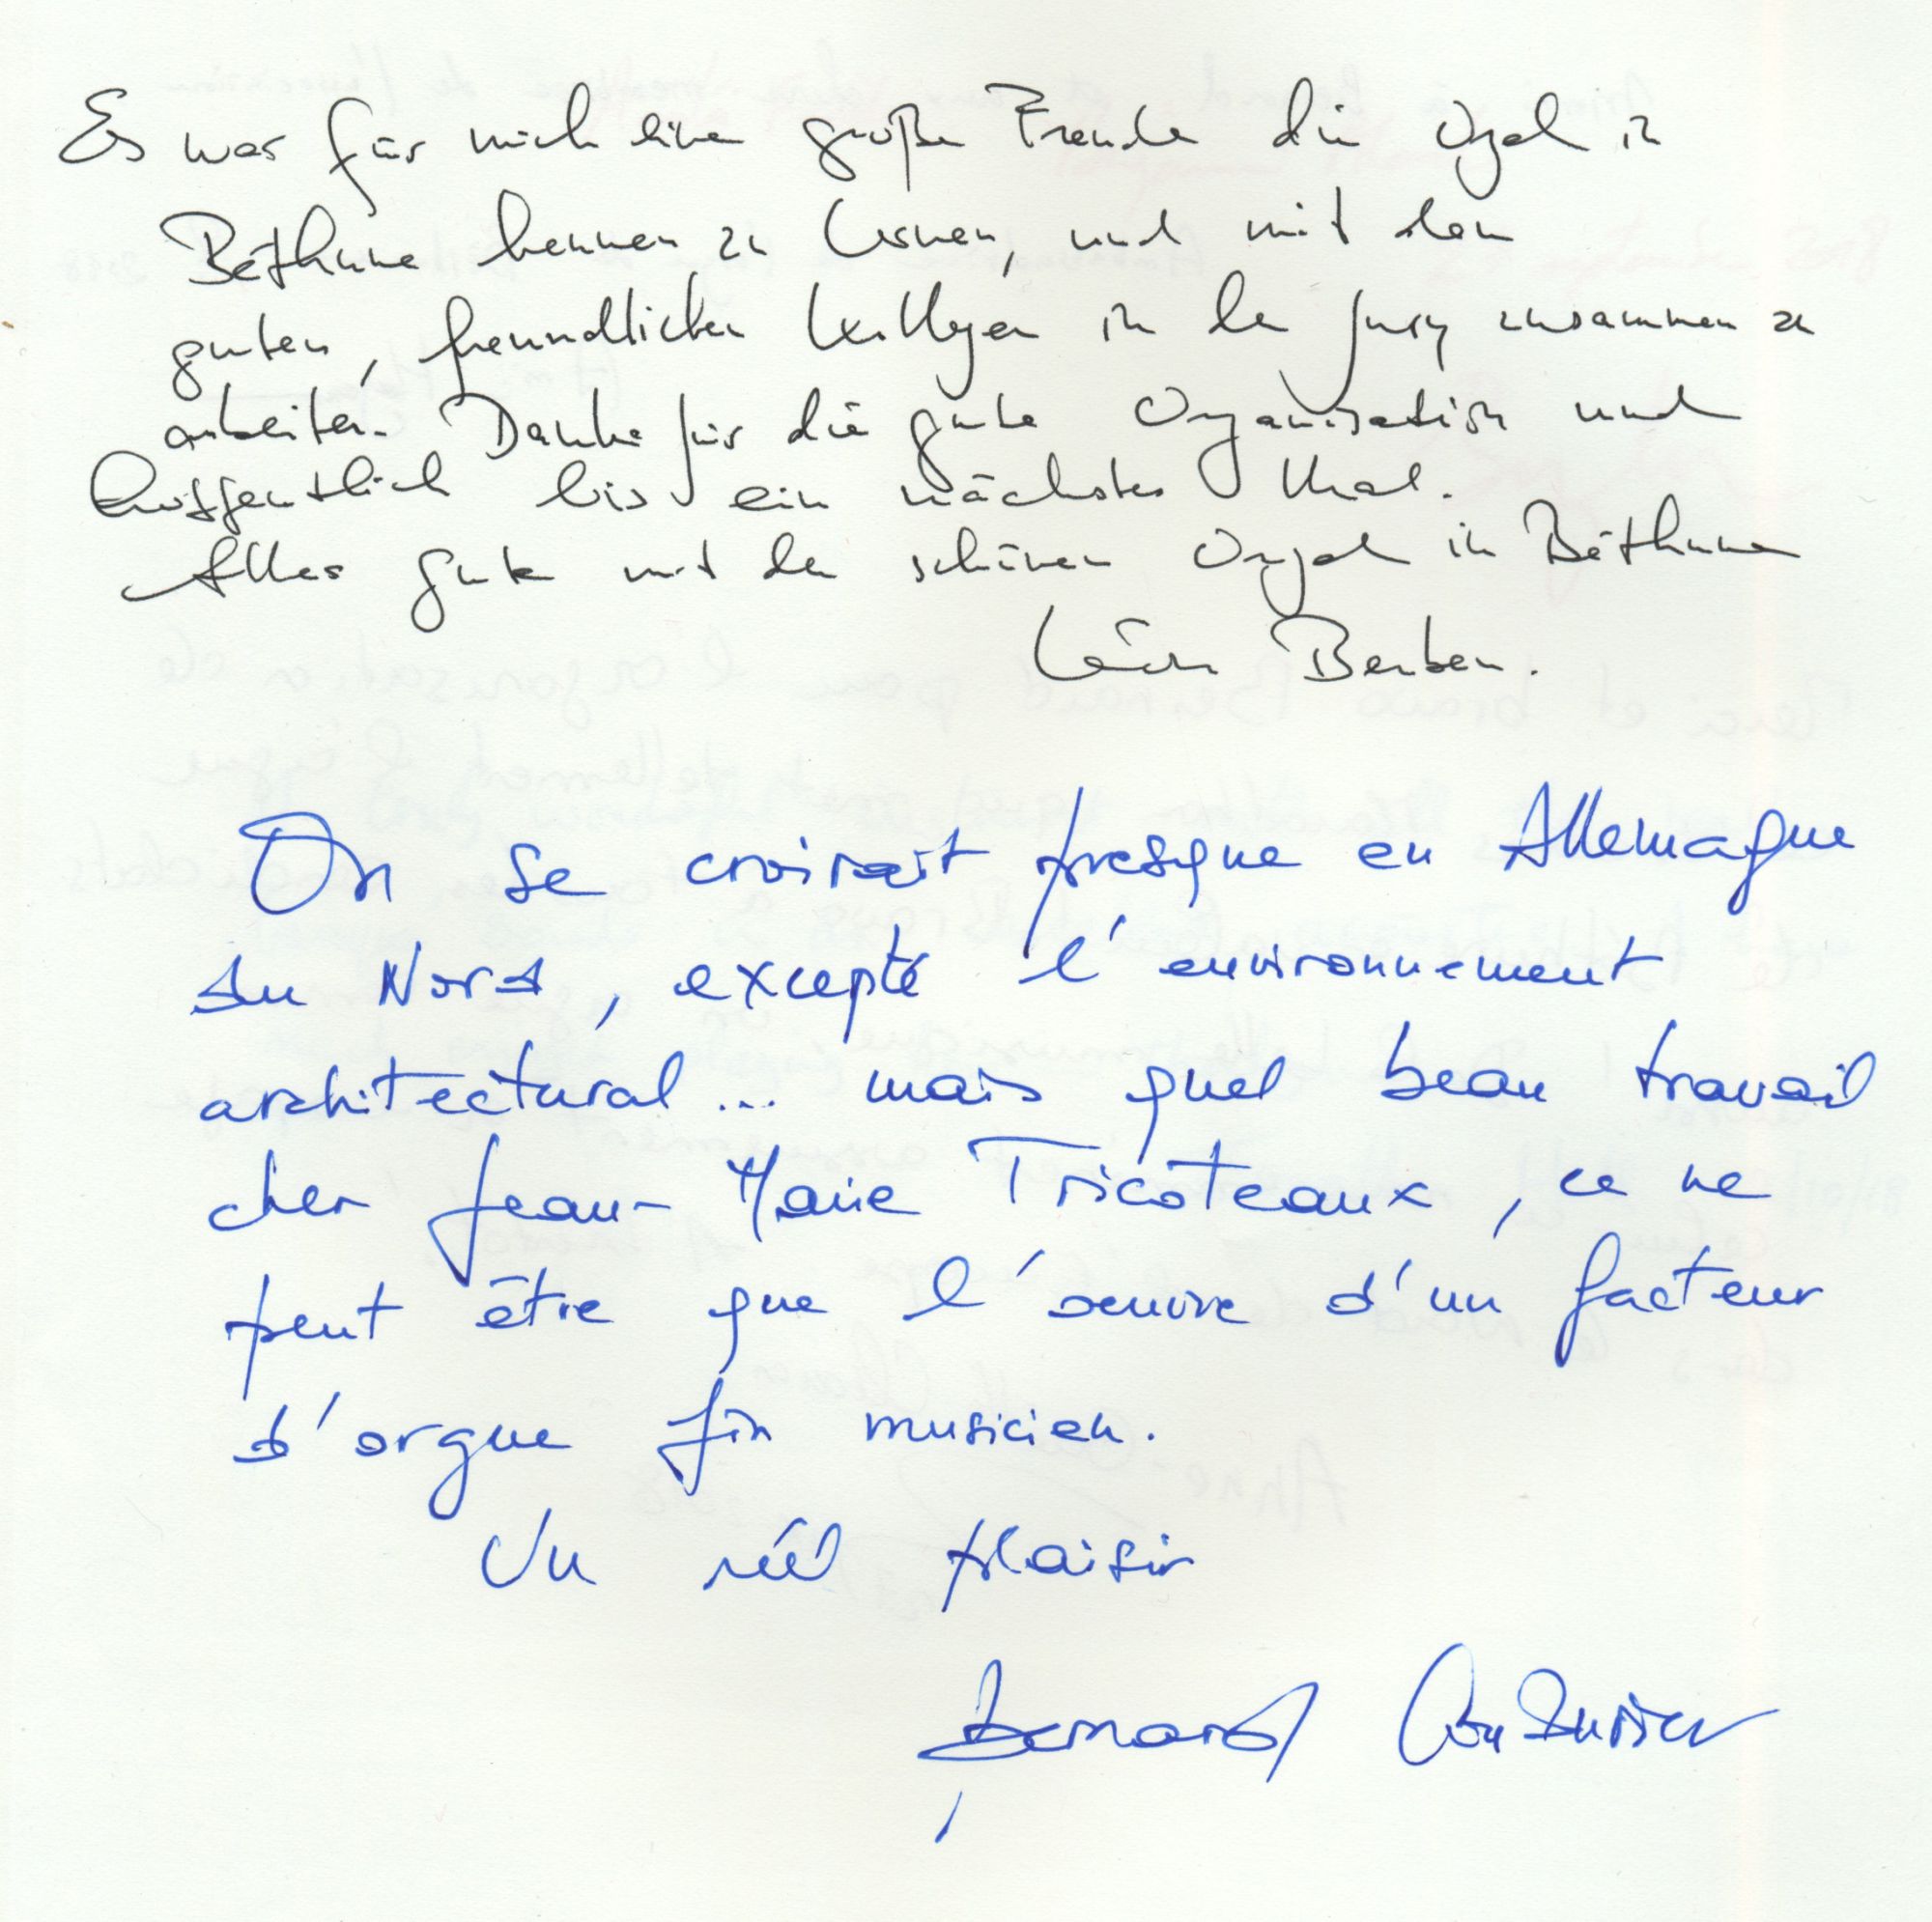 Es war für mich eine große Freude die Orgel in
Béthune kennen zu lernen, und mit den
guten, freundlichen Kollegen in der Jury zusammen zu
arbeiten. Danke für die gute Organisation und
hoffentlich bis ein nächstes Mal.
Alles gute mit der schönen Orgel in Béthune
Léon Berben.
On se croirait presque en Allemagne
du Nord, excepté l'environnement
architectural... mais quel beau travail
cher Jean-Marie Tricoteaux, ce ne
peut être que l'oeuvre d'un facteur
d'orgue fin musicien.
Un réel plaisir
Bernard